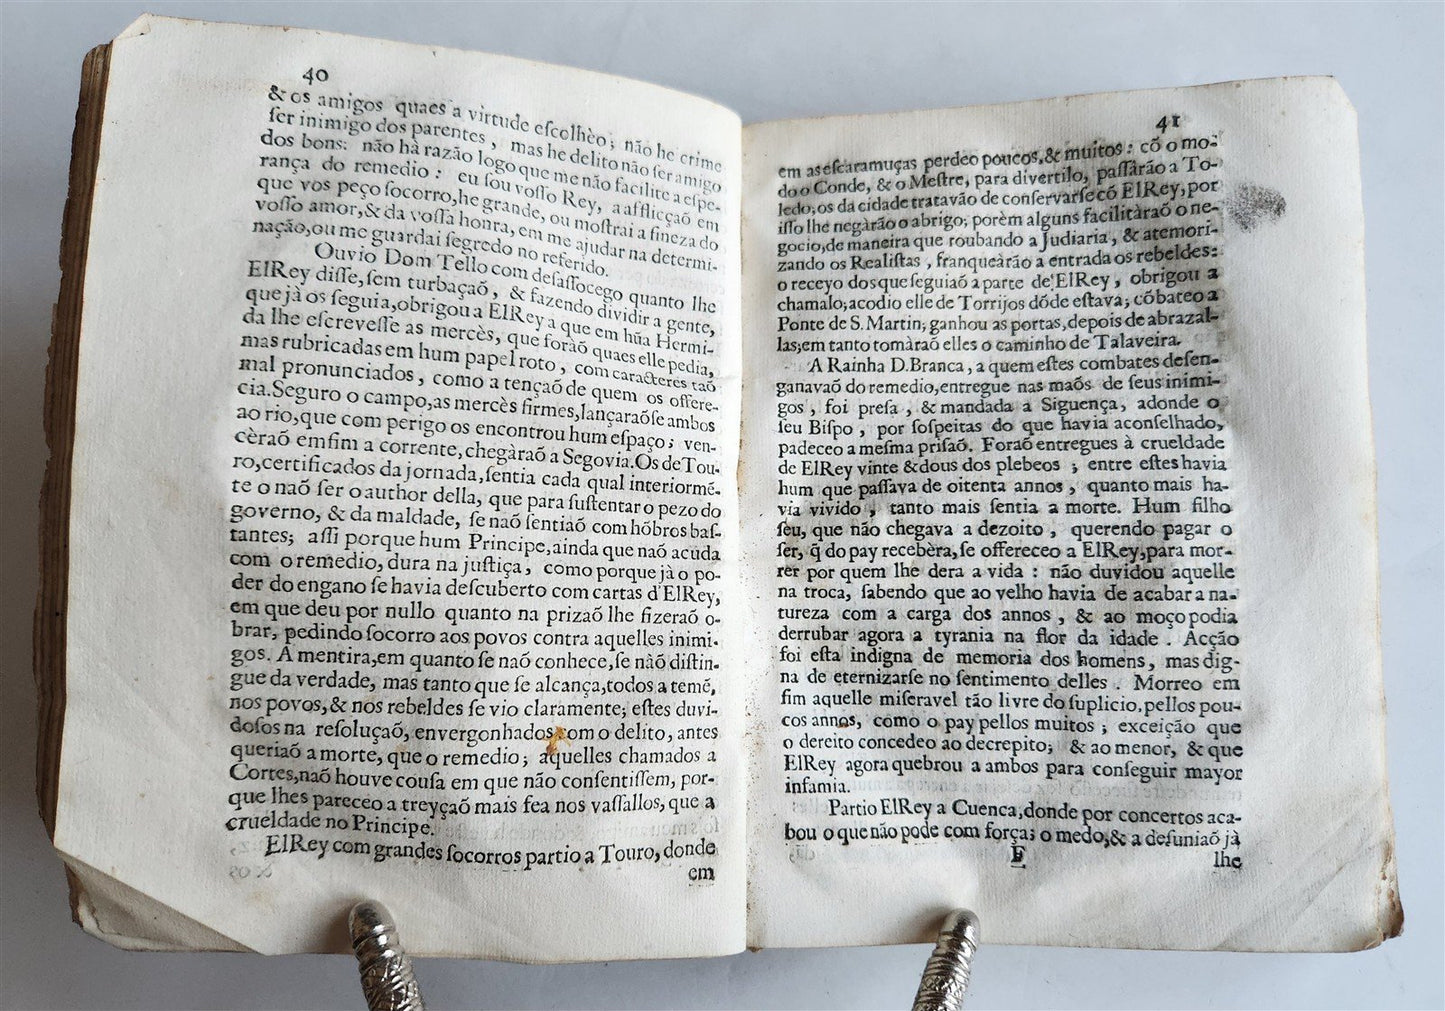 40
& os amigos quaes a virtude eſcolhèo; não he crime
ſer inimigo dos parentes, mas he delito não ſer amigo
dos bons: não hà razão logo que me não facilite a eſpe-
rança do remedio: eu ſou voſſo Rey, a afflicçaõ em
que vos peço ſocorro, he grande, ou moſtrai a fineza do
voſſo amor, & da voſſa honra, em me ajudar na determi-
nação, ou me guardai ſegredo no referido.
Ouvio Dom Tello com deſaſſocego quanto lhe
ElRey diſſe, ſem turbaçaõ, & fazendo dividir a gente,
que jà os ſeguia, obrigou a ElRey a que em hũa Hermi-
da lhe eſcreveſſe as mercès, que foraõ quaes elle pedia,
mas rubricadas em hum papel roto, com caracteres taõ
mal pronunciados, como a tençaõ de quem os offere-
cia. Seguro o campo, as mercès firmes, lançaraõſe ambos
ao rio, que com perigo os encontrou hum eſpaço; ven-
cèraõ emfim a corrente, chegàraõ a Segovia. Os de Tou-
ro, certificados da jornada, ſentia cada qual interiormẽ-
te o naõ ſer o author della, que para ſuſtentar o pezo do
governo, & da maldade, ſe naõ ſentiaõ com hõbros baſ-
tantes; aſſi porque hum Principe, ainda que naõ acuda
com o remedio, dura na juſtiça, como porque jà o po-
der do engano ſe havia deſcuberto com cartas d'ElRey,
em que deu por nullo quanto na prizaõ lhe fizeraõ o-
brar, pedindo ſocorro aos povos contra aquelles inimi-
gos. A mentira, em quanto ſe naõ conhece, ſe nàõ diſtin-
gue da verdade, mas tanto que ſe alcança, todos a temẽ,
nos povos, & nos rebeldes ſe vio claramente; eſtes duvi-
doſos na reſoluçaõ, envergonhados com o delito, antes
queriaõ a morte, que o remedio; aquelles chamados a
Cortes, naõ houve couſa em que não conſentiſſem, por-
que lhes pareceo a treyçaõ mais fea nos vaſſallos, que a
crueldade no Principe.
ElRey com grandes ſocorros partio a Touro, donde
em
41
em as eſcaramuças perdeo poucos, & muitos: cõ o mo-
do o Conde, & o Meſtre, para divertilo, paſſàrão a To-
ledo; os da cidade tratavão de conſervarſe cõ ElRey, por
iſſo lhe negàrão o abrigo; porèm alguns facilitàraõ o ne-
gocio, de maneira que roubando a Judiaria, & atemori-
zando os Realiſtas, franqueàrão a entrada os rebeldes:
o receyo dos que ſeguiaõ a parte de ElRey, obrigou a
chamalo; acodio elle de Torrijos dõde eſtava; cõbateo a
Ponte de S. Martin, ganhou as portas, depois de abrazal-
las; em tanto tomàraõ elles o caminho de Talaveira.
A Rainha D. Branca, a quem eſtes combates deſen-
ganavaõ do remedio, entregue nas maõs de ſeus inimi-
gos, foi preſa, & mandada a Siguença, adonde o
ſeu Biſpo, por ſoſpeitas do que havia aconſelhado,
padeceo a meſma priſaõ. Foraõ entregues à crueldade
de ElRey vinte & dous dos plebeos; entre eſtes havia
hum que paſſava de oitenta annos, quanto mais ha-
via vivido, tanto mais ſentia a morte. Hum filho
ſeu, que não chegava a dezoito, querendo pagar o
ſer, q̃ do pay recebèra, ſe offereceo a ElRey, para mor-
rer por quem lhe dera a vida: não duvidou aquelle
na troca, ſabendo que ao velho havia de acabar a na-
tureza com a carga dos annos, & ao moço podia
derrubar agora a tyrania na flor da idade. Acção
foi eſta indigna de memoria dos homens, mas dig-
na de eternizarſe no ſentimento delles. Morreo em
fim aquelle miſeravel tão livre do ſuplicio, pellos pou-
cos annos, como o pay pellos muitos; exceição que
o dereito concedeo ao decrepito; & ao menor, & que
ElRey agora quebrou a ambos para conſeguir mayor
infamia.
Partio ElRey a Cuenca, donde por concertos aca-
bou o que não pode com força; o medo, & a deſuniaõ jà
F
lhe